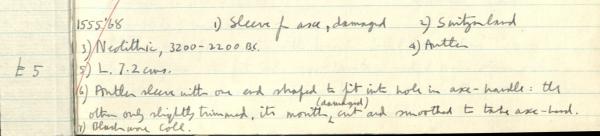 1555'68 1) Sleeve f axe, damaged 2) Switzerland
3) Neolithic, 3200-2200 BC. 4) Antler
£5 5) L. 7.2 cms.
6) Antler sleeve with one end shaped to fit into hole in axe-handle: the
other only slightly trimmed, its mouth (damaged) cut and smoothed to take axe-head.
7) Blackmore Coll.